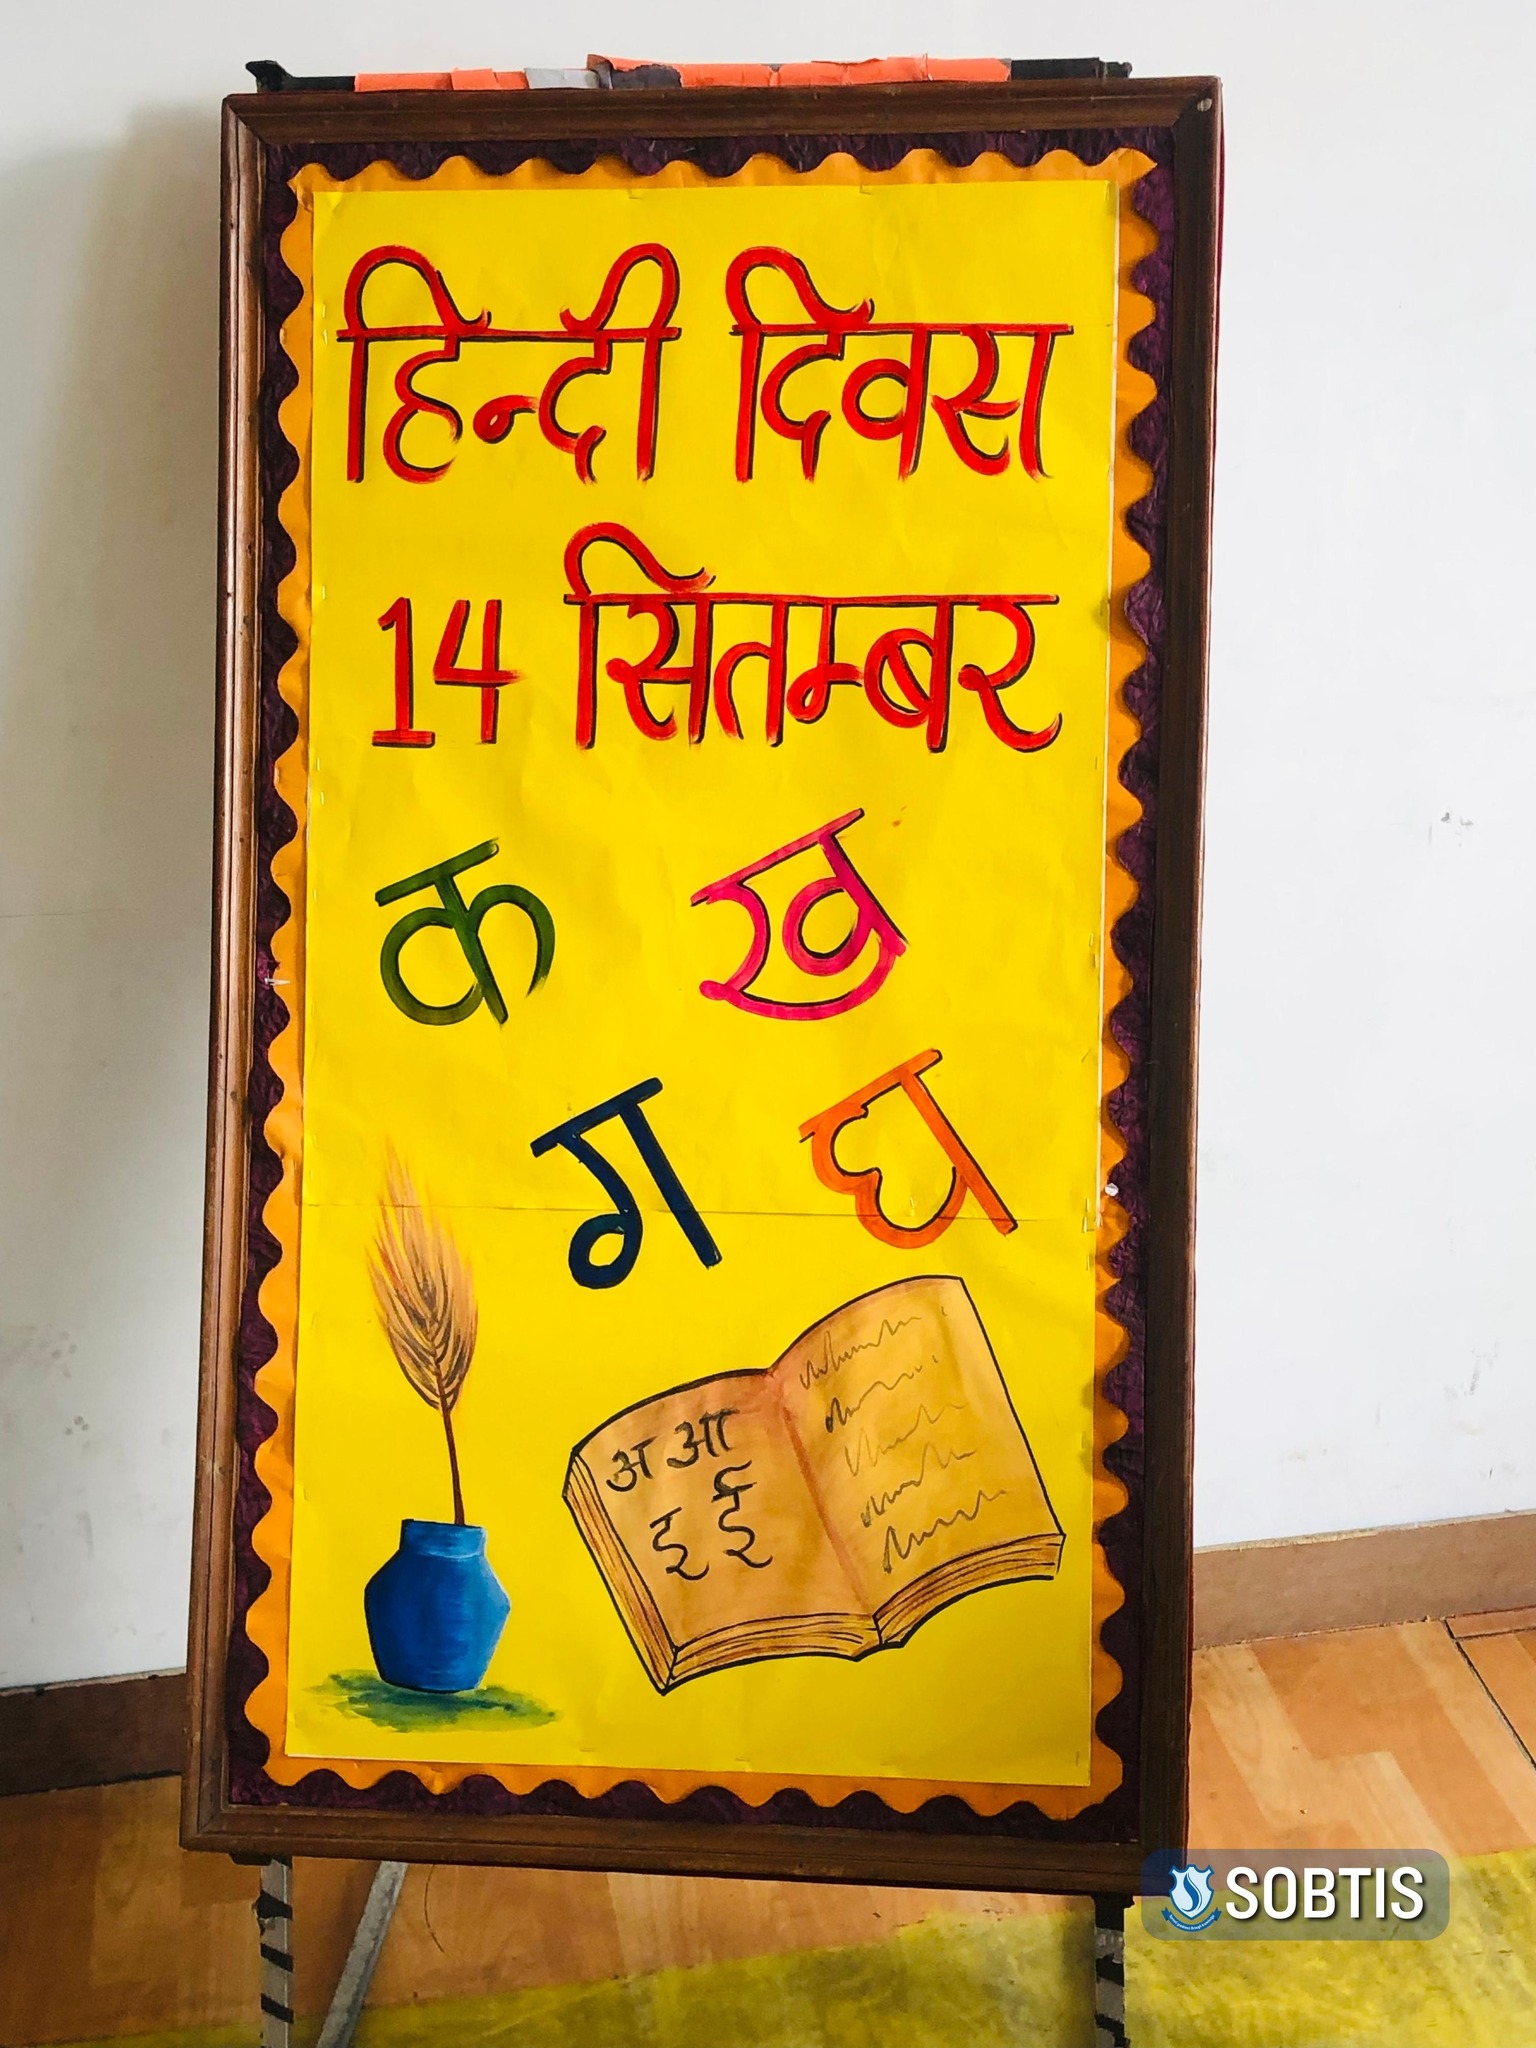 हिन्दी दिवस
14 सितम्बर
क ख
ग घ
अ आ
इ ई
SOBTIS